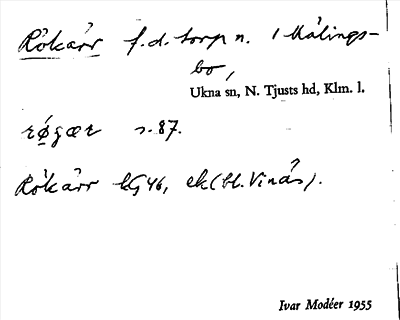 Rökärr f.d. torp n. i Målings-
bo,
Ukna sn, N. Tjusts hd, Klm. l.
røgær s. 87.
Rökärr kG46, ek (bl. Vinäs).
Ivar Modéer 1955